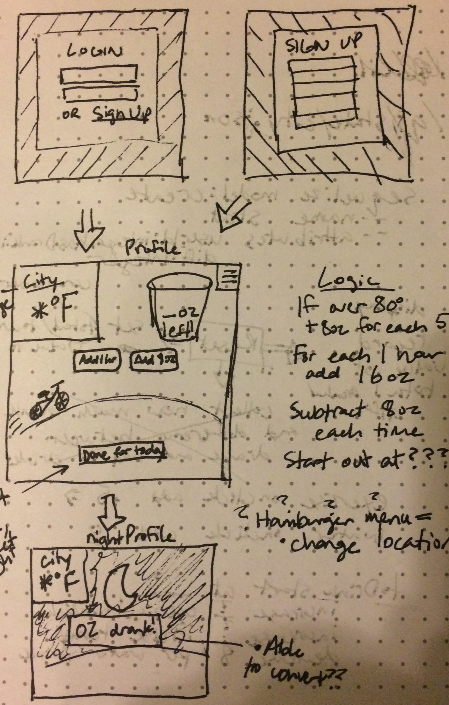 LOGIN
OR SignUp
SIGN UP
Profile
City
*°F
_oz
left
Add 1hr
Add 8oz
Done for today
Logic
If over 80°
+8oz for each 5
For each 1 hour
add 16oz
Subtract 8oz
each time
Start out at???
? ? ? ?
Hamburger menu =
• change location
nightProfile
City
*°F
OZ drank
• Able
to convert??